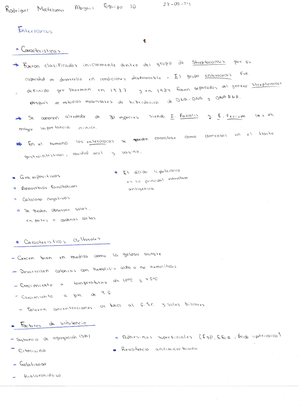 Rodriguez Maldonado Magali Equipo 10
Enterococos
• Características
→ Fueron clasificados inicialmente dentro del grupo de Streptococcus por su
capacidad de desarrollo en condiciones
El grupo enterococos fue
definido por Sherman en 1937 y en 1984 fueron separados del género Streptococcus
después de estudios moleculares de hibridación de DNA-DNA y DNA-RNA.
→ Se conocen alrededor de especies siendo E. Faecalis y E. Faecium las de
mayor importancia clínica.
→ En el humano los enterococos se pueden encontrar como comensales en el tracto
gastrointestinal, cavidad oral y vagina.
• Gram positivos
• Anaerobios facultativos
• Catalasa negativos
• Se pueden observar solos,
en pares o cadenas cortas
• El ácido lipoteicoico
es su principal
antigénico
• Características cultivables
- Crecen bien en medios como la gelosa sangre
- Desarrollan colonias con hemólisis alfa o no hemolíticas
- Crecimiento a temperaturas de 10°C y 45°C
- Crecimiento a pH de 9.6
- Toleran concentraciones de NaCl al 6.5% y sales biliares.
• Factores de virulencia
- Sustancia de agregación (SA)
- Citolisina
- Gelatinasa
- Hialuronidasa
• Adhesinas superficiales
• Resistencia antimicrobiana